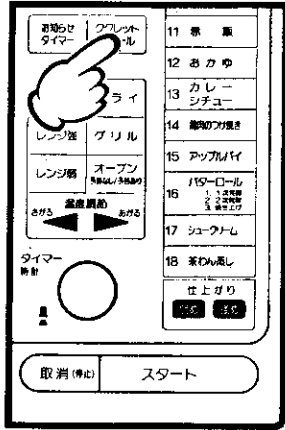 お知らせ
タイマー
ライ
レンジ強
グリル
レンジ弱
オーブン
温度調節
さがる
あがる
タイマー
時計
取消(停止)
スタート
11 赤飯
12 おかゆ
13 カレー
シチュー
14 鶏肉のつけ焼き
15 アップルパイ
16 バターロール
17 シュークリーム
18 茶わん蒸し
仕上がり